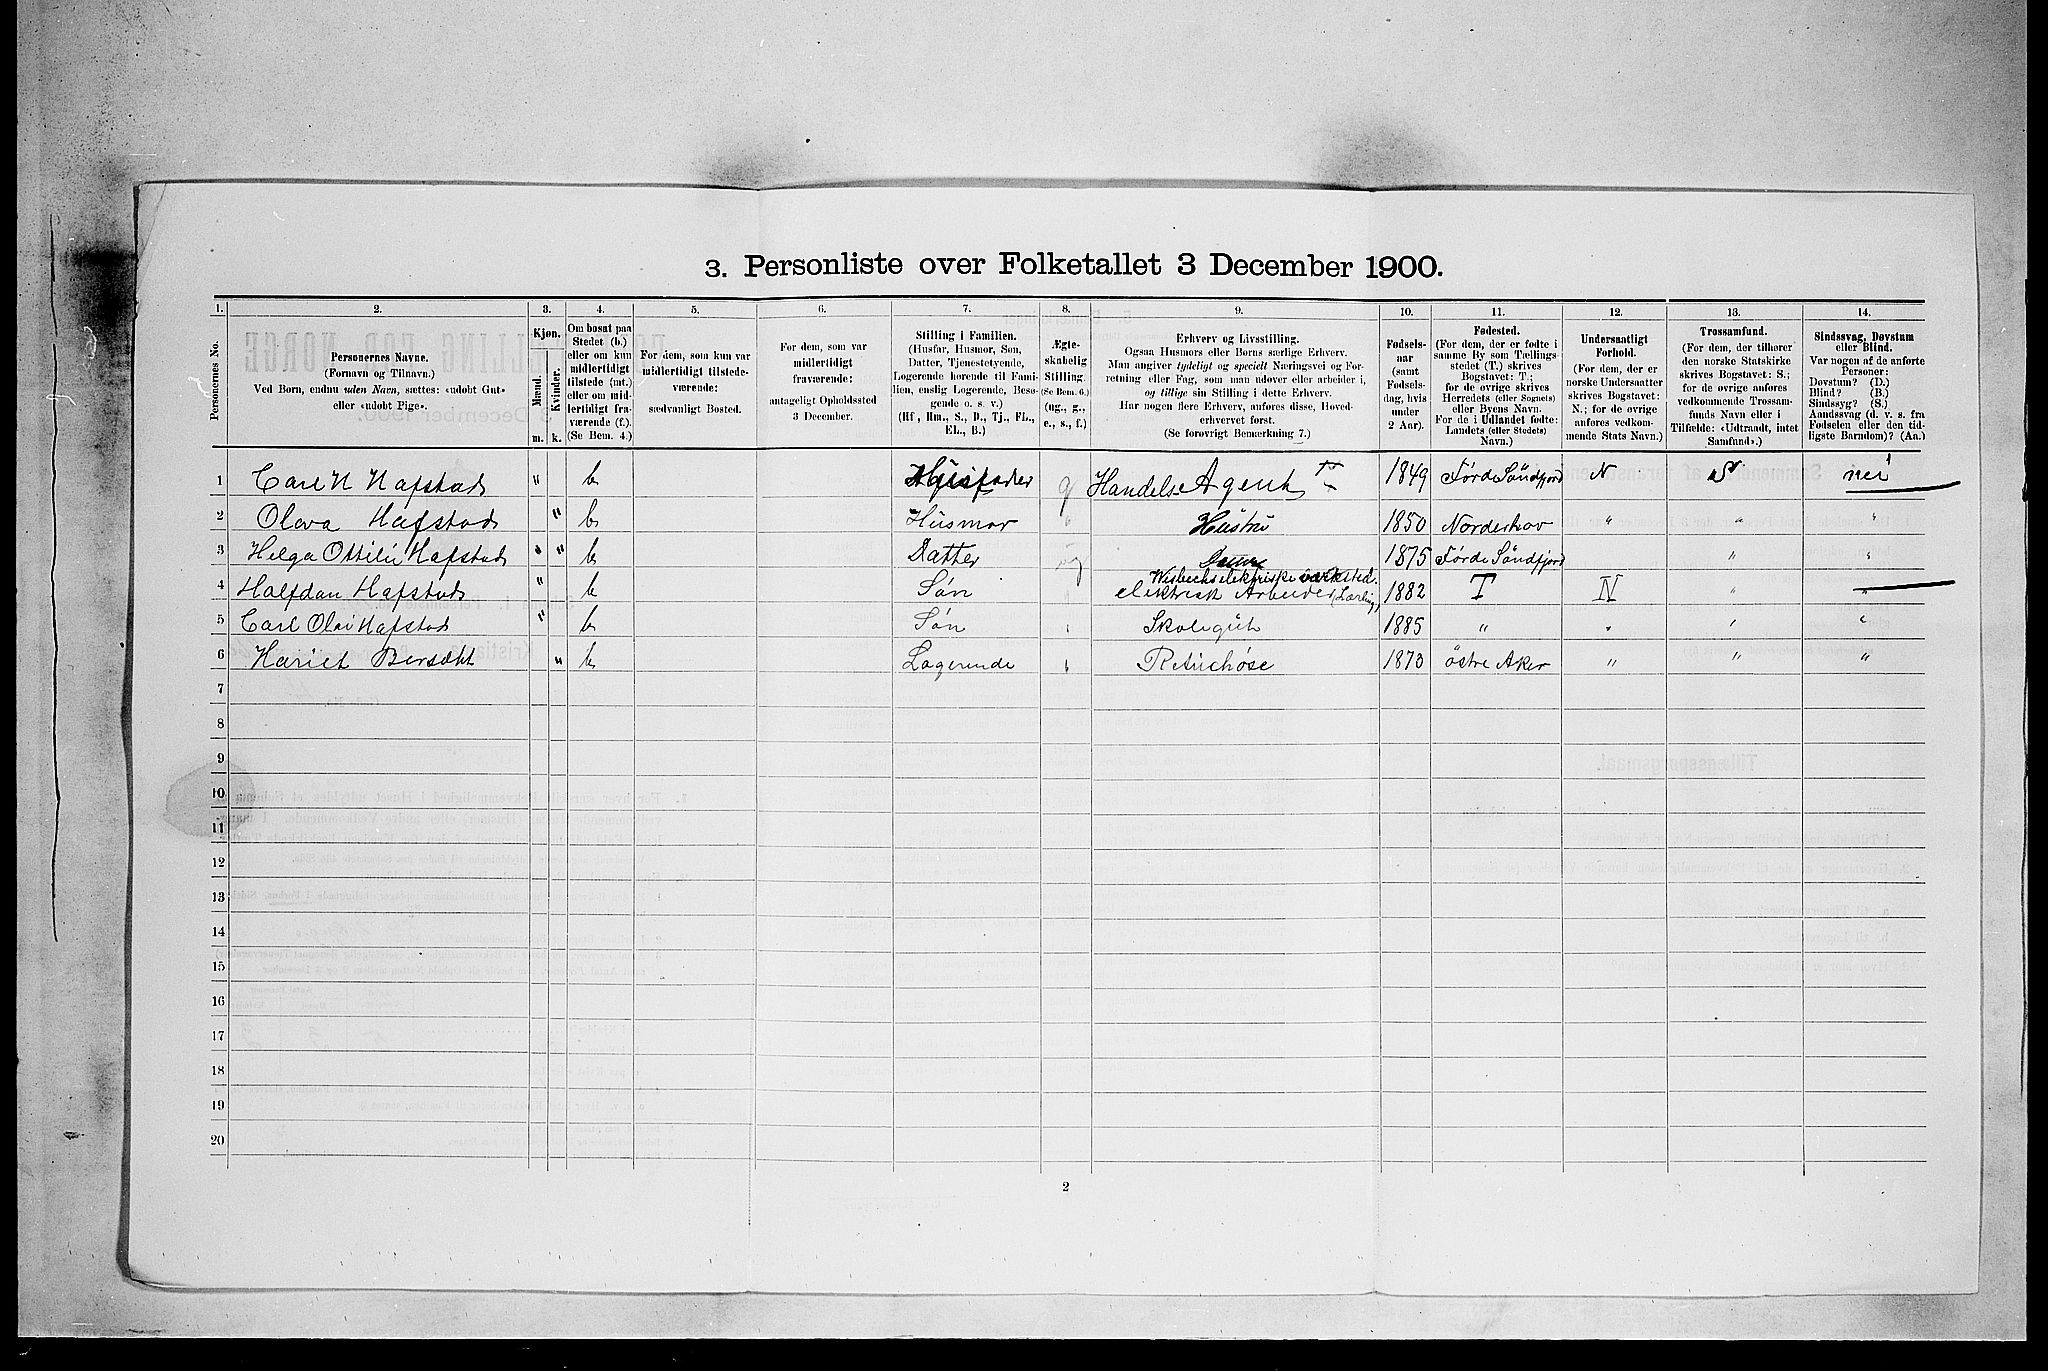 3. Personliste over Folketallet 3 December 1900.
1. 2. 3. 4. 5. 6. 7. 8. 9. 10. 11. 12. 13. 14.
Personernes No.
Personernes Navne.
(Fornavn og Tilnavn.)
Ved Børn, endnu uden Navn, sættes: «udøbt Gut»
eller «udøbt Pige».
Kjøn.
Mænd.
Kvinder.
m. k.
Om bosat paa
Stedet (b.)
eller om kun
midlertidigt
tilstede (mt.)
eller om mid-
lertidigt fra-
værende (f.).
(Se Bem. 4.)
For dem, som kun var
midlertidigt tilstede-
værende:
sædvanligt Bosted.
For dem, som var
midlertidigt
fraværende:
antageligt Opholdssted
3 December.
Stilling i Familien.
(Husfar, Husmor, Søn,
Datter, Tjenestetyende,
Logerende hørende til Fami-
lien, enslig Logerende, Besø-
gende o. s. v.)
(Hf, Hm., S., D., Tj., FL.,
EL., B.)
Ægte-
skabelig
Stilling.
(Se Bem. 6.)
(ug., g.,
e., s., f.)
Erhverv og Livsstilling.
Ogsaa Husmors eller Børns særlige Erhverv.
Man angiver tydeligt og specielt Næringsvei og For-
retning eller Fag, som man udøver eller arbeider i,
og tillige sin Stilling i dette Erhverv.
Har nogen flere Erhverv, anføres disse, Hoved-
erhvervet først.
(Se forøvrigt Bemerkning 7.)
Fødsels-
aar
(samt
Fødsels-
dag, hvis
under
2 Aar).
Fødested.
(For dem, der er fødte i
samme By som Tællings-
stedet (T.) skrives
Bogstavet: T.;
for de øvrige skrives
Herredets (eller Sognets)
eller Byens Navn.
For de i Udlandet fødte:
Landets (eller Stedets)
Navn.)
Undersaatligt
Forhold.
(For dem, der er
norske Undersaatter
skrives Bogstavet:
N.; for de øvrige
anføres vedkom-
mende Stats Navn.)
Trossamfund.
(For dem, der tilhører
den norske Statskirke
skrives Bogstavet: S.;
for de øvrige anføres
vedkommende Trossam-
funds Navn eller i
Tilfælde: «Udtraadt, intet
Samfund».)
Sindssvag, Døvstum
eller Blind.
Var nogen af de anførte
Personer:
Døvstum? (D.)
Blind? (B.)
Sindssyg? (S.)
Aandssvag (d. v. s. fra
Fødselen eller den tid-
ligste Barndom)? (Aa.)
1 Carl N Hafstad " b Husfader g Handels Agent 1849 Førde Söndfjord N S nei
2 Oleva Hafstad " b Husmor " Hustru 1850 Norderhov " " "
3 Helga Ottilie Hafstad " b Datter ug 1875 Førde Söndfjord " "
4 Halfdan Hafstad " b Søn " elektriske værksted. elektrisk Arbeider (Lærling) 1882 T N " "
5 Carl Olai Hafstad " b Søn " Skolegut 1885 " " " "
6 Hariet " b Logerende " Retuchøse 1873 östre Aker " " "
7
8
9
10
11
12
13
14
15
16
17
18
19
20
2